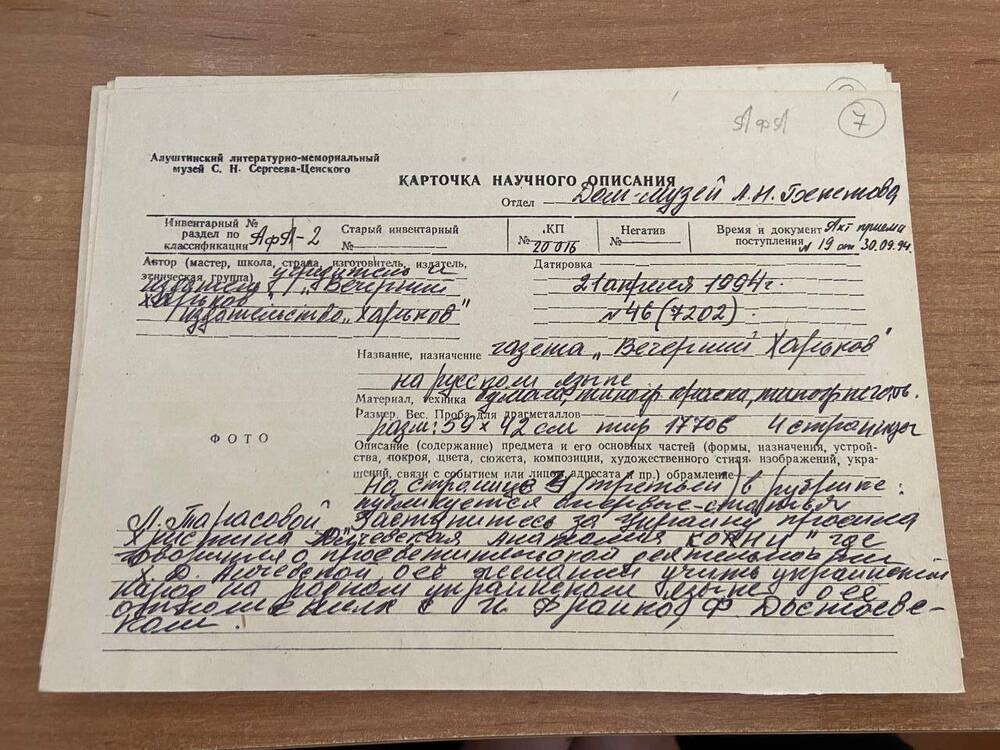 АфА 7
Алуштинский литературно-мемориальный
музей С. Н. Сергеева-Ценского
КАРТОЧКА НАУЧНОГО ОПИСАНИЯ
Отдел Дом-музей А.Н. Бекетова
Инвентарный №
раздел по
классификации АфА-2
Старый инвентарный
№
КП
№ 20016
Негатив
№
Время и документ
поступления Акт приема
№ 19 от 30.09.94.
Автор (мастер, школа, страна, изготовитель, издатель,
этническая группа) учредитель и
"Вечерний
Харьков"
Издательство „Харьков"
Датировка
21 апреля 1994г.
№ 46 (7202)
Название, назначение газета „Вечерний Харьков"
на русском языке
Материал, техника бумага, типогр краска, типогр
Размер. Вес. Проба для драгметаллов
разм: 59 х 42 см тир 17706 4 страницы
ФОТО
Описание (содержание) предмета и его основных частей (формы, назначения, устрой-
ства, покроя, цвета, сюжета, композиции, художественного стиля, изображений, укра-
шений, связи с событием или лицом, адресата и пр.) обрамление
На странице 3 (третьей) в рубрике:
публикуется впервые - статья
Л. Тарасовой „Заступитесь за Украину просила
Христина Алчевская
говорится о просветительской деятельности
Х. Д. Алчевской, о её желании учить украинский
народ на родном украинском языке, о её
с И Франко, Ф. Достоевс-
ким.